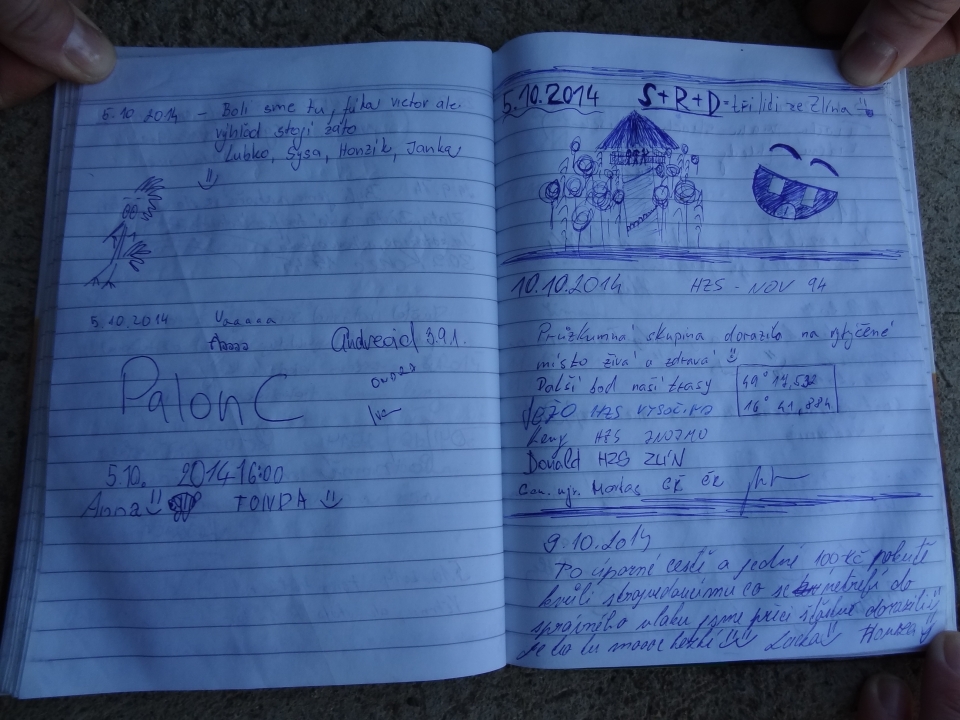 5.10.2014 - Boli sme tu, fúka victor ale
výhľad stojí zato
Lubko, Sysa, Honzík, Janka
5.10.2014 Uaaaaa
Aaaaa
Andrecid 3.9.1.
PalonC
5.10. 2014 16:00
Anna TONDA
5.10.2014 S+R+D = tři lidi ze Zlína
10.10.2014 HZS - NOV 94
Průzkumná skupina dorazila na vytyčené
místo živá a zdravá
Další bod naší trasy
49° 17,532
16° 41,884
JEŽO HZS VYSOČINA
Leny HZS ZNOJMO
Donald HZS ZLÍN
9.10.2014
Po úporné cestě a jedné 100 Kč pokutě
kvůli
do
správného vlaku jsme přeci šťastně dorazili
Je to tu moooc hezké Lucka Honzza